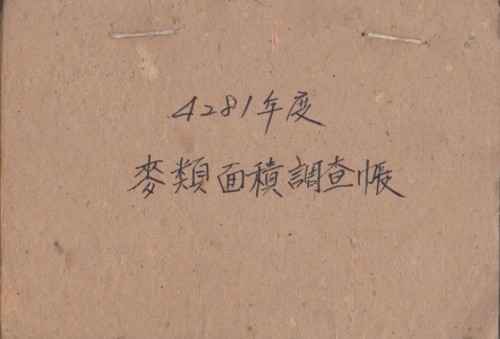 4281年度
麥類面積調查帳